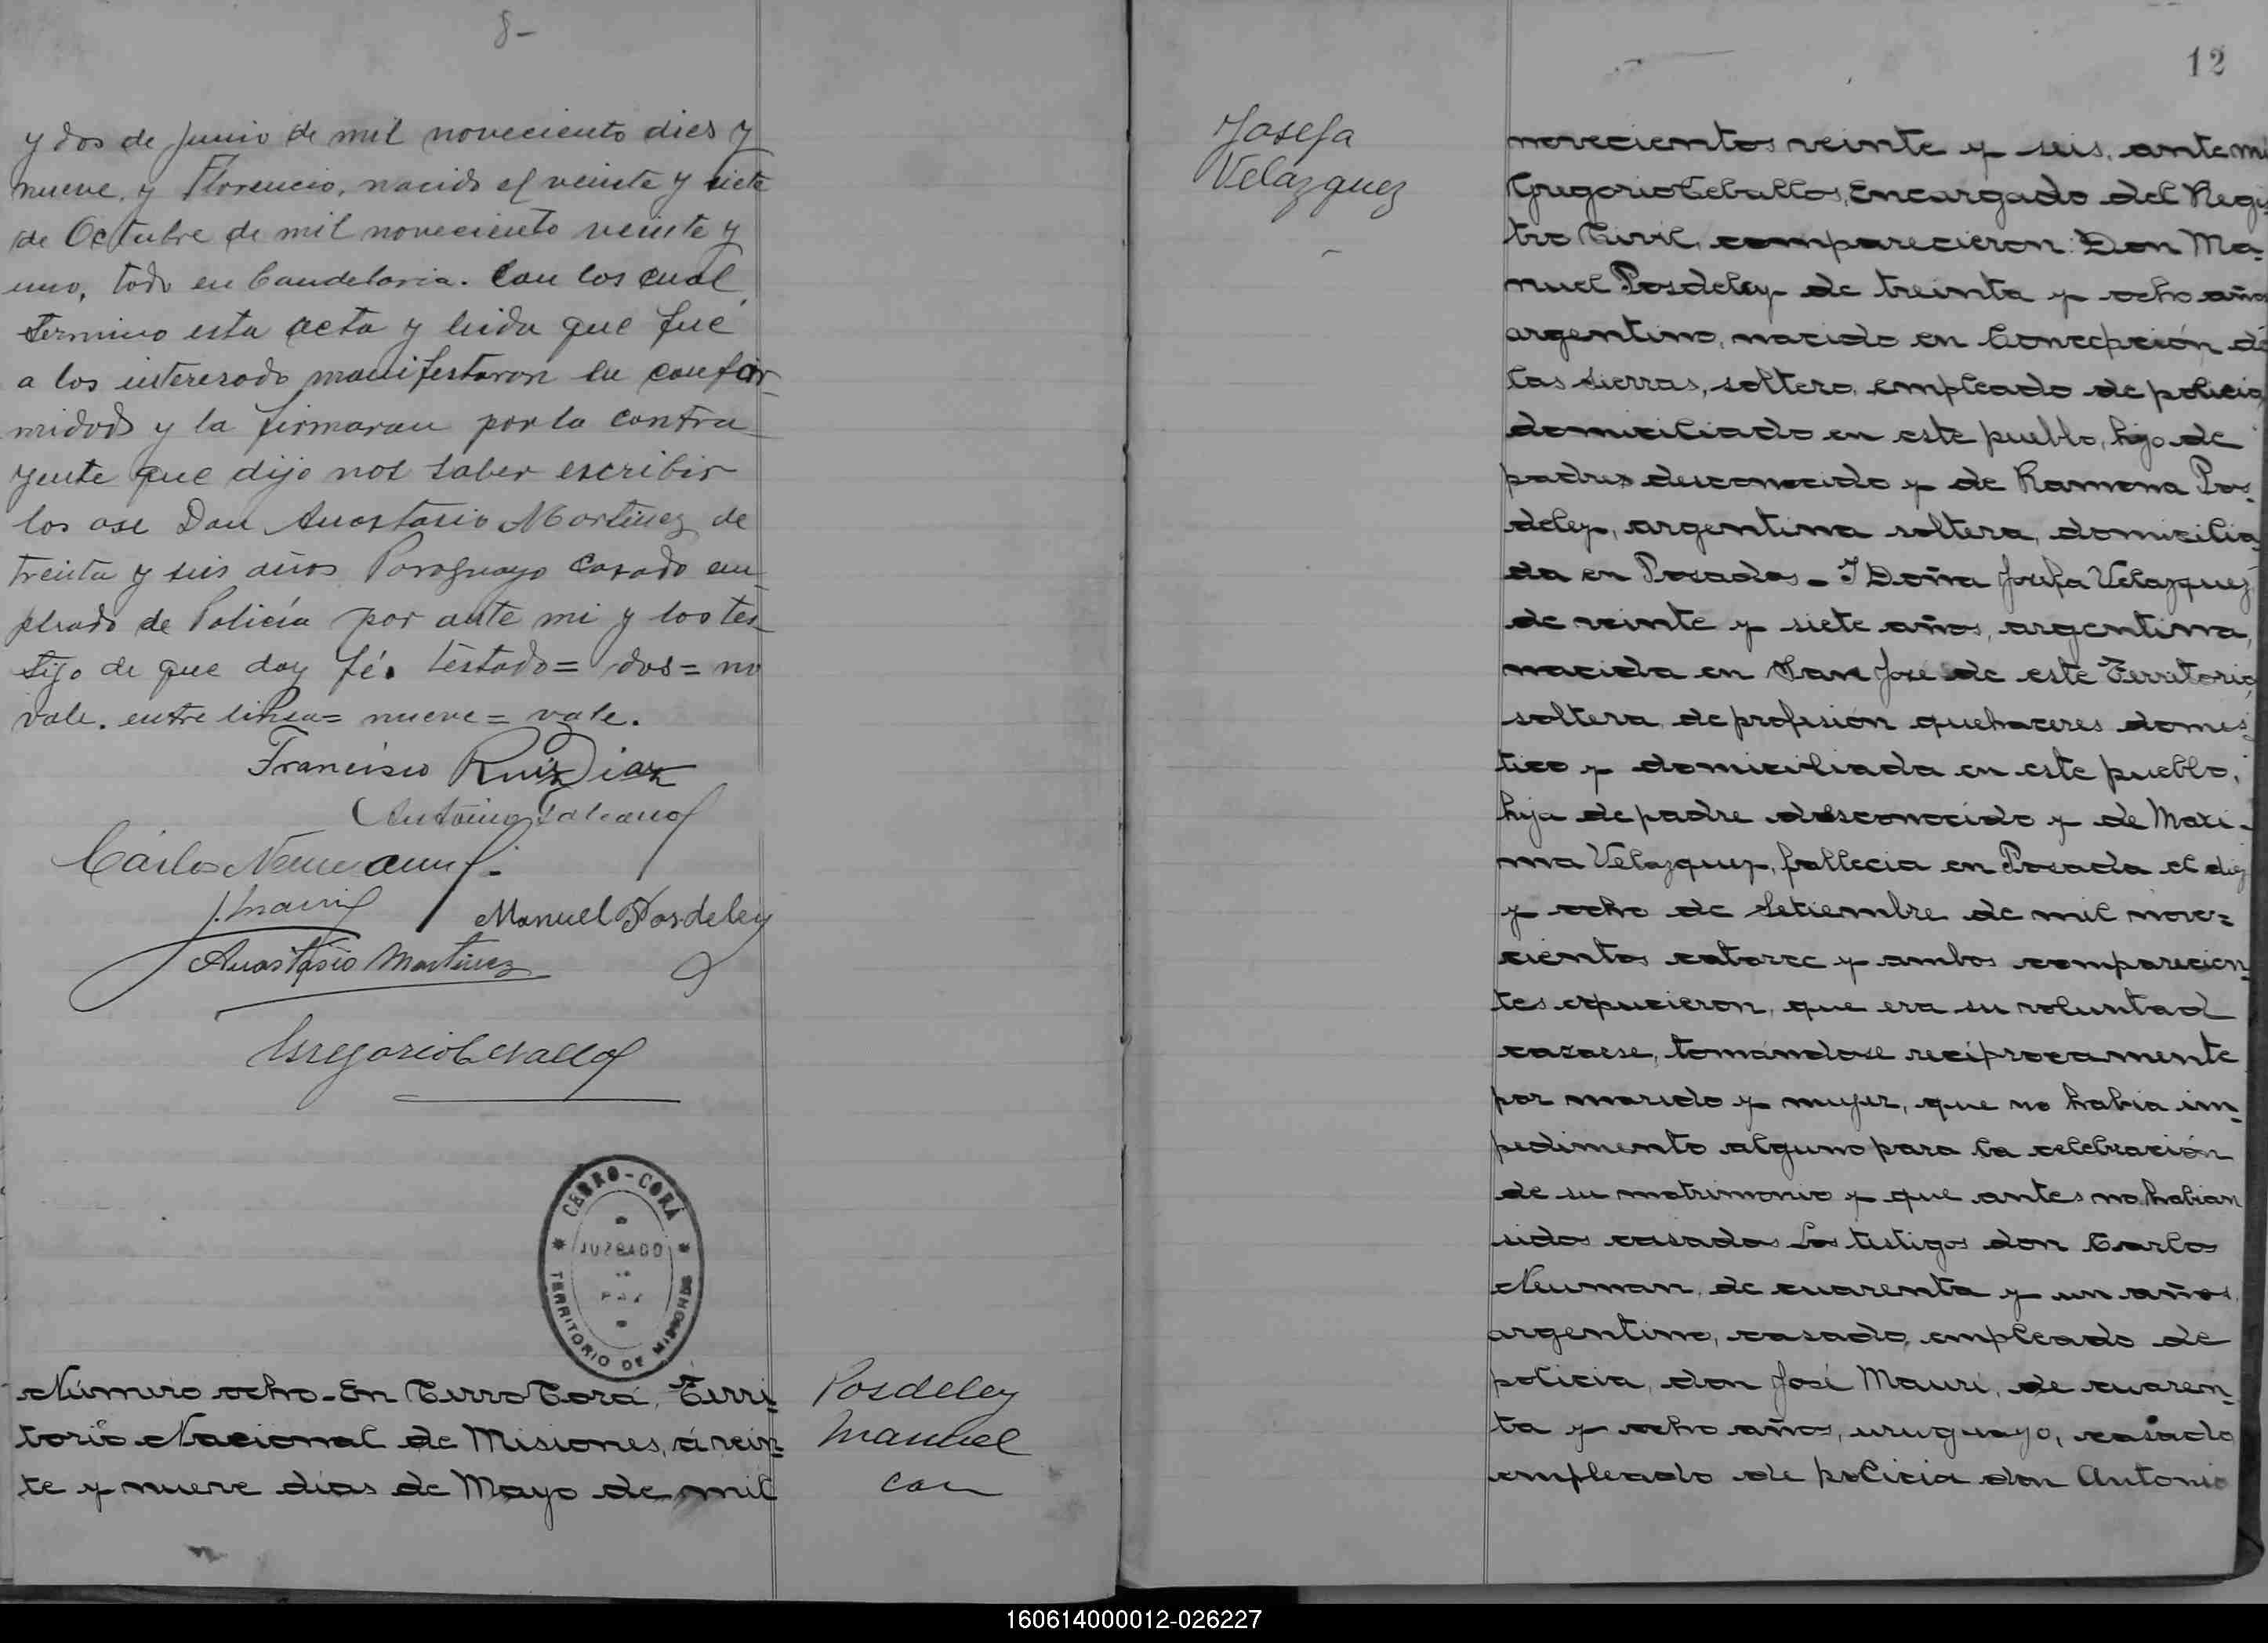 8-
y dos de Junio de mil noveciento dies y
nueve, y Florencio, nacido el veinte y siete
de Octubre de mil noveciento veinte y
uno, todo en Candelaria. Con los cual
termino esta acta y leida que fue
a los interesado manifestaron su confor-
midad y la firmaran por la contra
yente que dijo not saber escribir
los ase Don Anastasio Martinez de
treinta y seis años Paraguayo Casado em-
pleado de Policía por ante mi y los tes-
tigo de que doy fé. testado= dos= no
vale. entre linea= nueve= vale.
Francisco Ruiz Diaz
Antonio Galeano
Cárlos Neumann
J. Mauri
Manuel Posdeley
Anastasio Martinez
Gregorio Ceballos
CERRO-CORÁ
JUZGADO
DE
PAZ
TERRITORIO DE MISIONES
Número ocho-En Cerro Corá, Terri-
torio Nacional de Misiones, á vein-
te y nueve dias de Mayo de mil
Posdeley
Manuel
con
12
Josefa
Velazquez
novecientos veinte y seis, ante mi
Gregorio Ceballos, Encargado del Regis
tro Civil, comparecieron: Don Ma-
nuel Posdeley de treinta y ocho años
argentino, nacido en Concepción de
las Sierras, soltero, empleado de policia
domiciliado en este pueblo, hijo de
padres desconocido y de Ramona Pos-
deley, argentina soltera, domicilia
da en Posadas- I Doña Josefa Velazquez
de veinte y siete años, argentina,
nacida en San José de este Territorio,
soltera, de profesión quehaceres domes-
tico y domiciliada en este pueblo,
hija de padre desconocido y de Maxi-
ma Velazquez, fallecia en Posada el diez
y ocho de Setiembre de mil nove-
cientos catorce y ambos comparecien-
tes expucieron, que era su voluntad
casaese, tomándose recíprocamente
por marido y mujer, que no habia im-
pedimento alguno para la celebración
de su matrimonio y que antes no habian
sidos casados Los testigos don Carlos
Neuman, de cuarenta y un años,
argentino, casado, empleado de
policia, don José Mauri, de cuaren-
ta y ocho años, uruguayo, casado
empleado de policia don Antonio
160614000012-026227